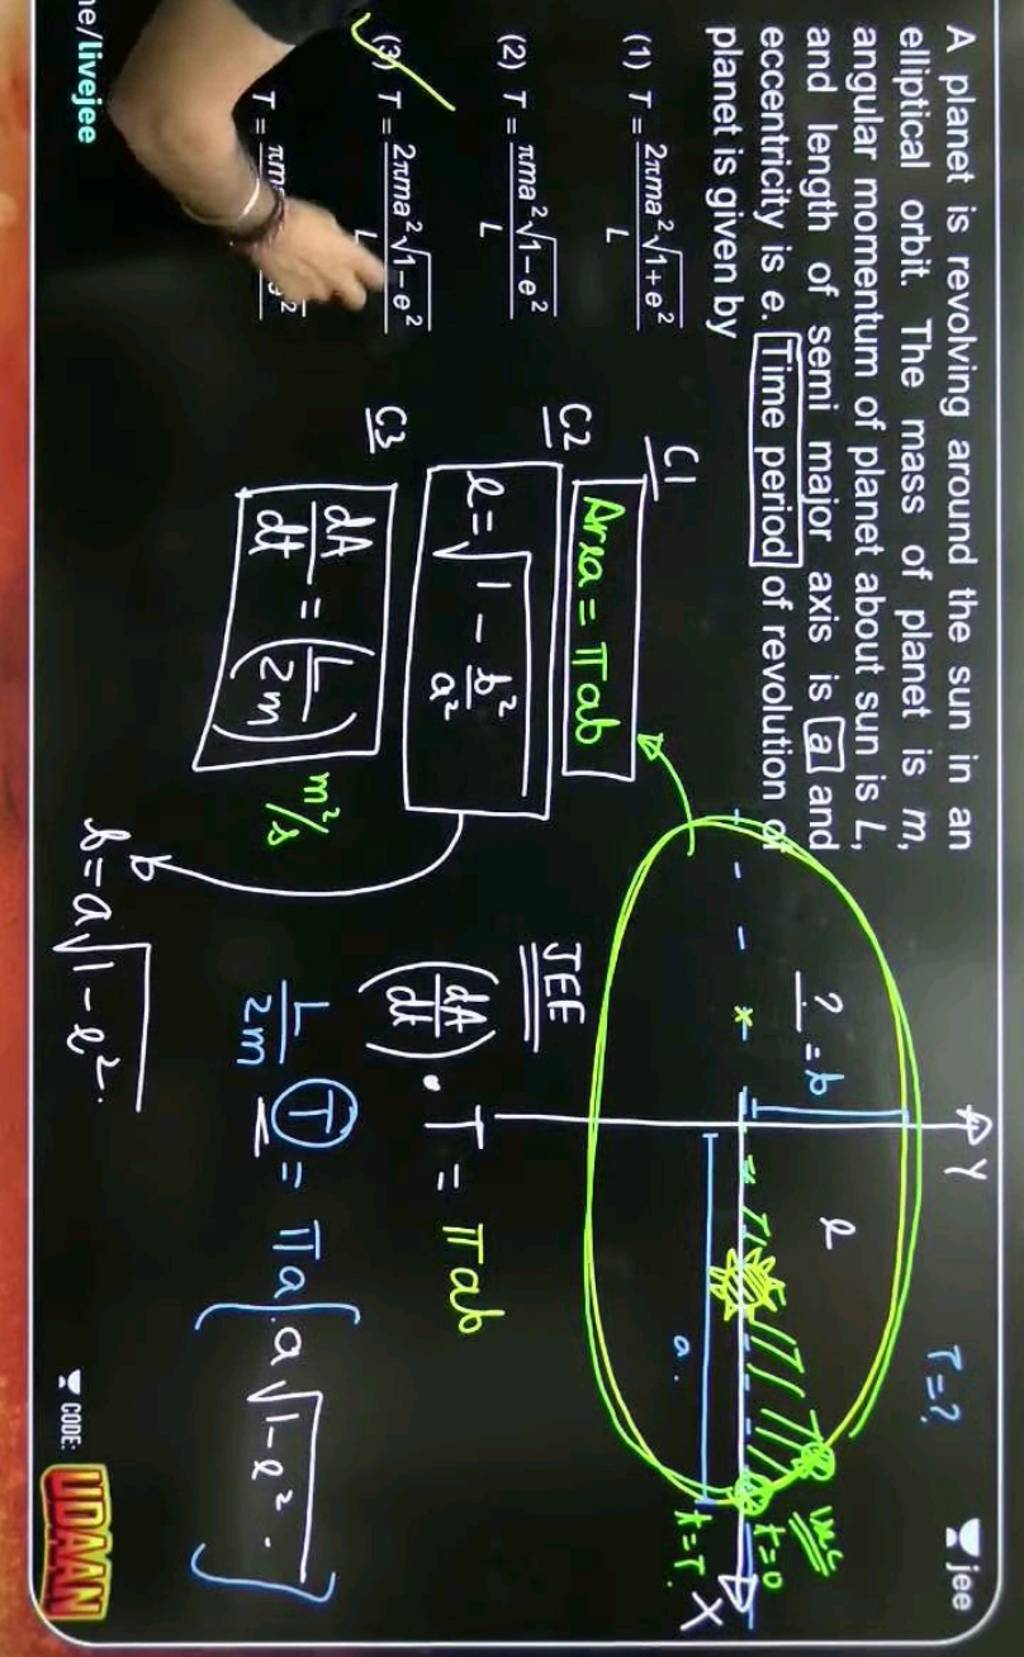 A planet is revolving around the sun in an
elliptical orbit. The mass of planet is m,
angular momentum of planet about sun is L,
and length of semi major axis is a and
eccentricity is e. Time period of revolution of
planet is given by
(1) T = 2πma²√1+e² / L
(2) T = πma²√1−e² / L
(3) T = 2πma²√1−e² / L
T = πm
C1
Area = πab
C2
e = √1 − b²/a²
C3
dA/dt = (L/2m) m²/s
b
b = a√1−e².
Y
T=?
? = b
e
a.
t=0
t=T.
X
JEE
(dA/dt) . T = πab
L/2m T = πa{a√1−e².}
jee
ne/livejee
CODE:
UDAAN